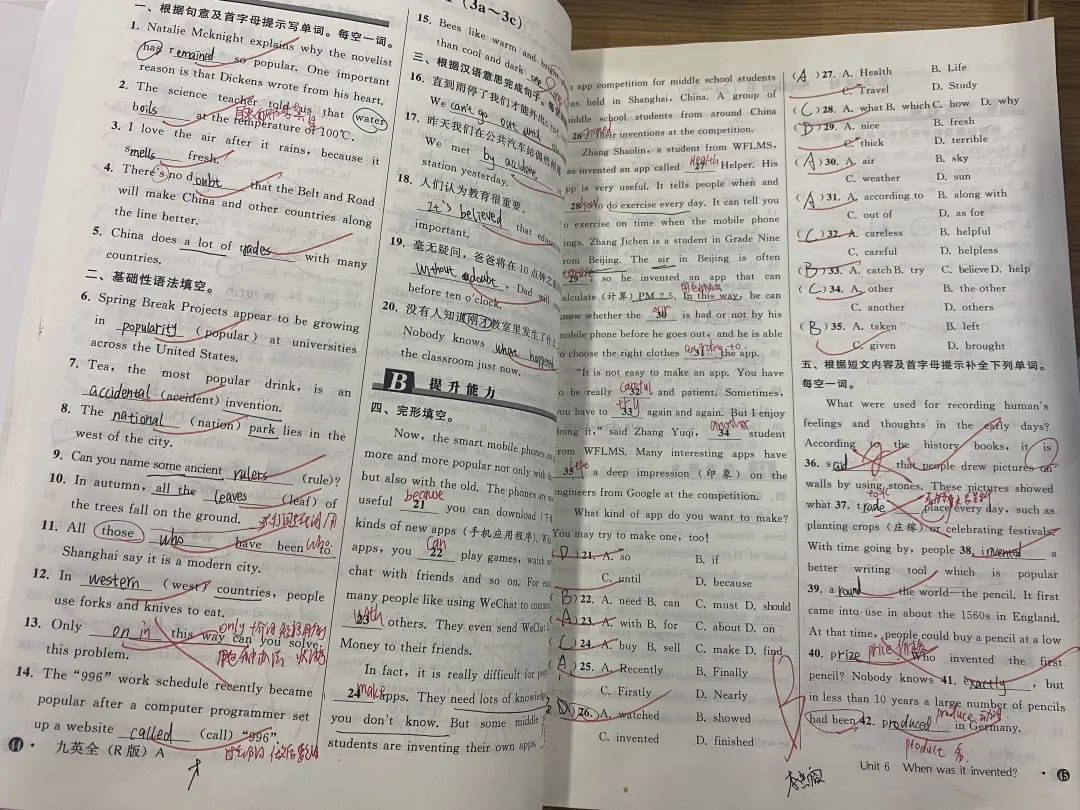 (3a~3c)
一、根据句意及首字母提示写单词。每空一词。
1. Natalie Mcknight explains why the novelist
has remained so popular. One important
reason is that Dickens wrote from his heart.
2. The science teacher told us that water
boils at the temperature of 100℃.
3. I love the air after it rains, because it
smells fresh.
4. There's no doubt that the Belt and Road
will make China and other countries along
the line better.
5. China does a lot of trades with many
countries.
二、基础性语法填空。
6. Spring Break Projects appear to be growing
in popularity (popular) at universities
across the United States.
7. Tea, the most popular drink, is an
accidental (accident) invention.
8. The national (nation) park lies in the
west of the city.
9. Can you name some ancient rulers (rule)?
10. In autumn, all the leaves (leaf) of
the trees fall on the ground.
11. All those who have been to
Shanghai say it is a modern city.
12. In western (west) countries, people
use forks and knives to eat.
13. Only on in this way can you solve
this problem.
14. The “996” work schedule recently became
popular after a computer programmer set
up a website called (call) “996”.
44 · 九英全（R版）A
15. Bees like warm and bright
than cool and dark
三、根据汉语意思完成句子。每
16. 直到雨停了我们才能外出
We can't go out until
17. 昨天我们在公共汽车站偶然相
We met by accident
station yesterday.
18. 人们认为教育很重要。
It's believed that edu
important.
19. 毫无疑问，爸爸将在10点钟之
Without a doubt, Dad will
before ten o'clock.
20. 没有人知道刚才教室里发生了什么
Nobody knows what happened
the classroom just now.
B 提升能力
四、完形填空。
Now, the smart mobile phones are
more and more popular not only with
but also with the old. The phones are
useful because 21 you can download (下
kinds of new apps (手机应用程序). Wi
apps, you can 22 play games, watch
chat with friends and so on. For
many people like using WeChat to
with 23 others. They even send WeChat
Money to their friends.
In fact, it is really difficult for
24 make apps. They need lots of knowledge
you don't know. But some middle
students are inventing their own apps
app competition for middle school students
was held in Shanghai, China. A group of
middle school students from around China
26 showed their inventions at the competition.
Zhang Shaolin, a student from WFLMS,
has invented an app called Health 27 Helper. His
app is very useful. It tells people when and
28 how to do exercise every day. It can tell you
to exercise on time when the mobile phone
rings. Zhang Jichen is a student in Grade Nine
from Beijing. The air in Beijing is often
29, so he invented an app that can
calculate (计算) PM 2.5. In this way, he can
know whether the air 30 is bad or not by his
mobile phone before he goes out, and he is able
to choose the right clothes according to 31 the app.
“It is not easy to make an app. You have
to be really careful 32 and patient. Sometimes,
you have to try 33 again and again. But I enjoy
doing it,” said Zhang Yuqi, another 34 student
from WFLMS. Many interesting apps have
35 a deep impression (印象) on the
engineers from Google at the competition.
What kind of app do you want to make?
You may try to make one, too!
(D) 21. A. so B. if
C. until D. because
(B) 22. A. need B. can C. must D. should
(A) 23. A. with B. for C. about D. on
(C) 24. A. buy B. sell C. make D. find
(A) 25. A. Recently B. Finally
C. Firstly D. Nearly
26. A. watched B. showed
C. invented D. finished
(A) 27. A. Health B. Life
C. Travel D. Study
(C) 28. A. what B. which C. how D. why
(D) 29. A. nice B. fresh
C. thick D. terrible
(A) 30. A. air B. sky
C. weather D. sun
(A) 31. A. according to B. along with
C. out of D. as for
(C) 32. A. careless B. helpful
C. careful D. helpless
(B) 33. A. catch B. try C. believe D. help
(C) 34. A. other B. the other
C. another D. others
(B) 35. A. taken B. left
C. given D. brought
五、根据短文内容及首字母提示补全下列单词。
每空一词。
What were used for recording human's
feelings and thoughts in the early days?
According to the history books, it is
36. said that people drew pictures on
walls by using stones. These pictures showed
what 37. trade place every day, such as
planting crops (庄稼) or celebrating festivals.
With time going by, people 38. invented a
better writing tool which is popular
39. around the world—the pencil. It first
came into use in about the 1560s in England.
At that time, people could buy a pencil at a low
40. prize price. Who invented the first
pencil? Nobody knows 41. exactly, but
in less than 10 years a large number of pencils
had been 42. produced in Germany.
produce
product
Unit 6 When was it invented? · 45